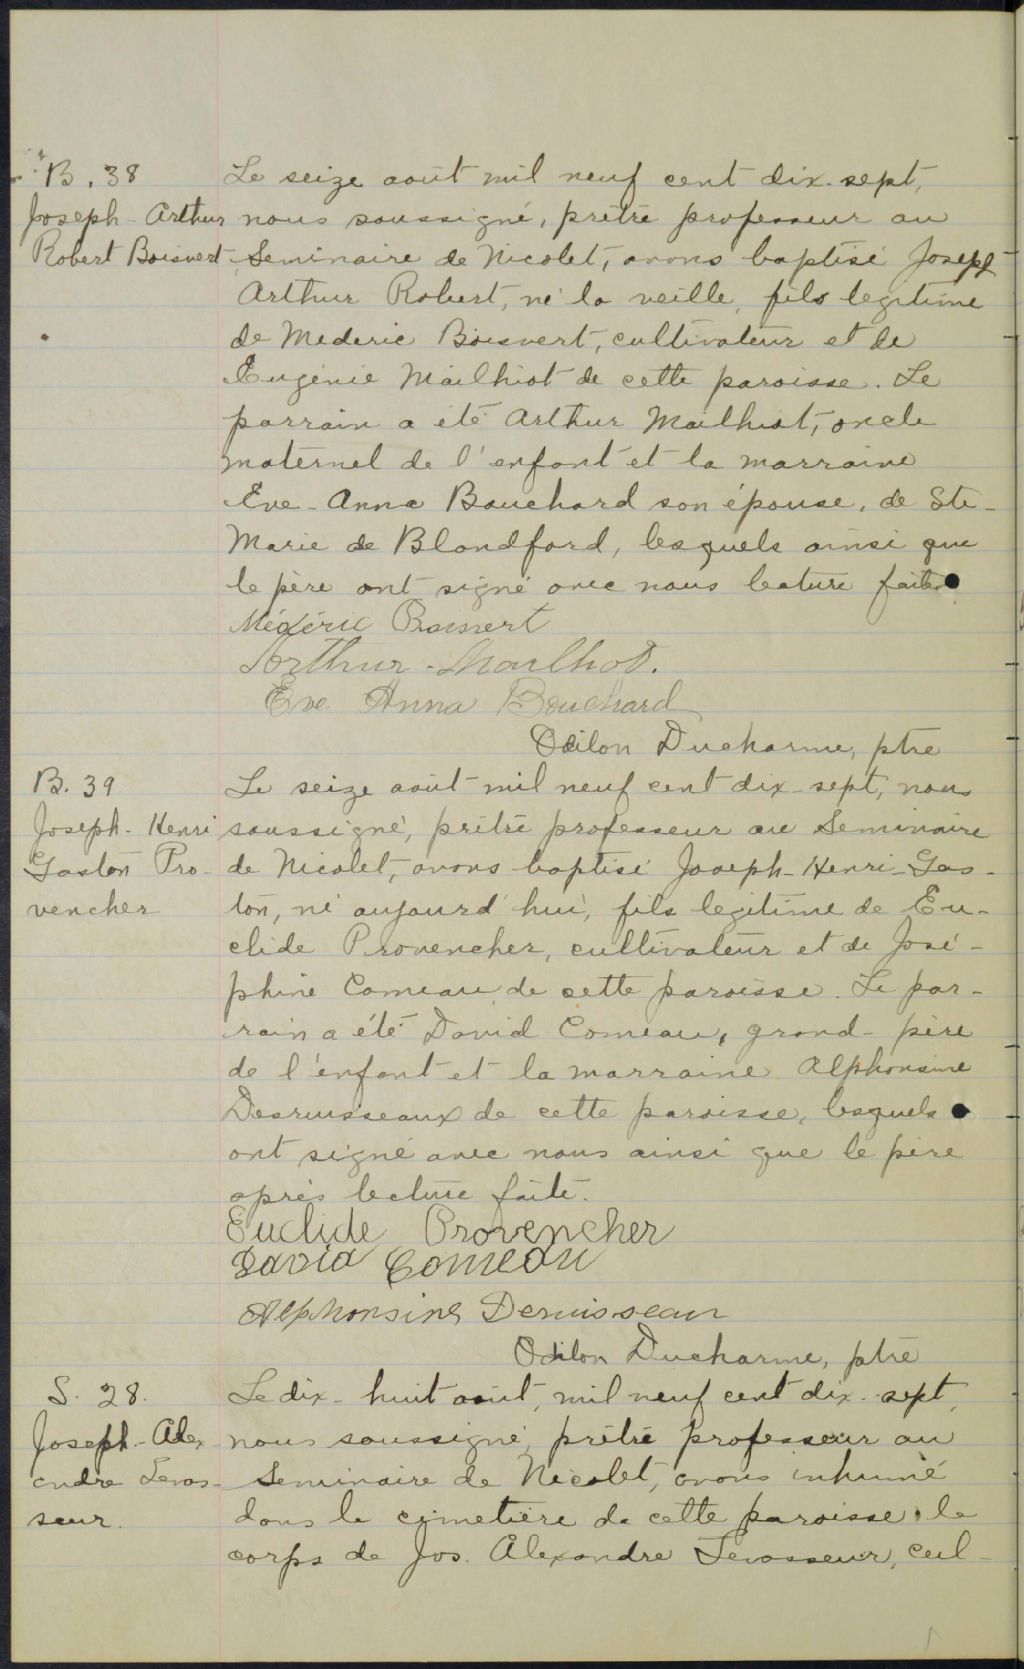 B. 38
Joseph-Arthur
Robert Boisvert
Le seize août mil neuf cent dix-sept,
nous soussigné, prêtre professeur au
Seminaire de Nicolet, avons baptisé Joseph
Arthur Robert, né la veille, fils legitime
de Mederic Boisvert, cultivateur et de
Eugénie Mailhiot de cette paroisse. Le
parrain a été Arthur Mailhiot, oncle
maternel de l'enfant et la marraine
Eve-Anna Bouchard son épouse, de Ste-
Marie de Blandford, lesquels ainsi que
le père ont signé avec nous lecture faite
Médéric Boisvert
Arthur Mailhot.
Eve Anna Bouchard
Odilon Ducharme, ptre
B. 39
Joseph-Henri
Gaston Pro-
vencher
Le seize août mil neuf cent dix-sept, nous
soussigné, prêtre professeur au Seminaire
de Nicolet, avons baptisé Joseph-Henri-Gas-
ton, né aujourd'hui, fils legitime de Eu-
clide Provencher, cultivateur et de José-
phine Comeau de cette paroisse. Le par-
rain a été David Comeau, grand-père
de l'enfant et la marraine Alphonsine
Desruisseaux de cette paroisse, lesquels
ont signé avec nous ainsi que le père
après lecture faite.
Euclide Provencher
David Comeau
Alphonsine Deruisseau
Odilon Ducharme, ptre
S. 28.
Joseph-Alex-
andre Levas-
seur.
Le dix-huit août, mil neuf cent dix-sept,
nous soussigné, prêtre professeur au
Seminaire de Nicolet, avons inhumé
dans le cimetière de cette paroisse, le
corps de Jos. Alexandre Levasseur, cul-